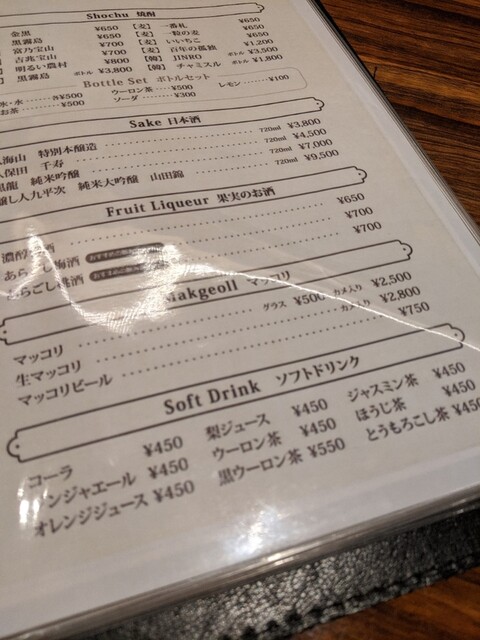 Shochu 焼酎
金黒 ¥650 【麦】 一番札 ¥650
黒霧島 ¥650 【麦】 一粒の麦 ¥650
富乃宝山 ¥700 【麦】 いいちこ ¥650
吉兆宝山 ¥700 【麦】 百年の孤独 ¥1,200
明るい農村 ¥800 【韓】 JINRO ボトル ¥3,500
黒霧島 ボトル ¥3,800 【韓】 チャミスル ボトル ¥1,800
Bottle Set ボトルセット
氷・水 各¥500 ウーロン茶 ¥500 レモン ¥100
お茶 ¥500 ソーダ ¥300
Sake 日本酒
海山 特別本醸造 720ml ¥3,800
保田 千寿 720ml ¥4,500
龍 純米吟醸 720ml ¥7,000
醸し人九平次 純米大吟醸 山田錦 720ml ¥9,500
Fruit Liqueur 果実のお酒
濃醇 酒 ¥650
あら し梅酒 ¥700
らごし桃酒 ¥700
Makgeoll マッコリ
マッコリ グラス ¥500 カメ入り ¥2,500
生マッコリ カメ入り ¥2,800
マッコリビール ¥750
Soft Drink ソフトドリンク
コーラ ¥450 梨ジュース ¥450 ジャスミン茶 ¥450
ンジャエール ¥450 ウーロン茶 ¥450 ほうじ茶 ¥450
オレンジジュース ¥450 黒ウーロン茶 ¥550 とうもろこし茶 ¥450